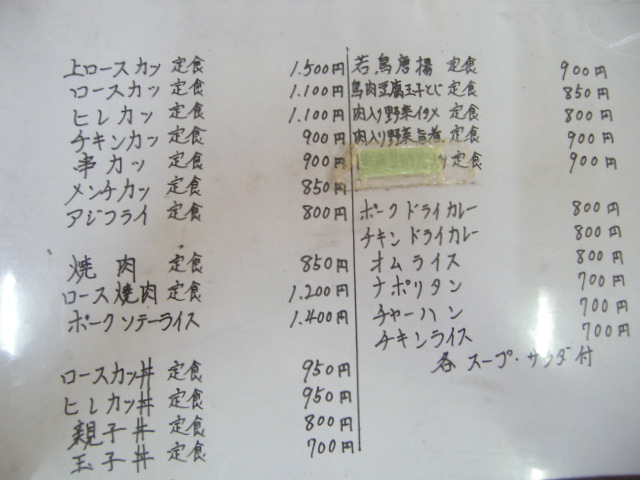 上ロースカツ 定食 1.500円
ロースカツ 定食 1.100円
ヒレカツ 定食 1.100円
チキンカツ 定食 900円
串カツ 定食 900円
メンチカツ 定食 850円
アジフライ 定食 800円
焼肉 定食 850円
ロース焼肉 定食 1.200円
ポークソテーライス 1.400円
ロースカツ丼 定食 950円
ヒレカツ丼 定食 950円
親子丼 定食 800円
玉子丼 定食 700円
若鳥唐揚 定食 900円
鳥肉豆腐玉子とじ 定食 850円
肉入り野菜イタメ 定食 800円
肉入り野菜旨煮 定食 900円
定食 900円
ポークドライカレー 800円
チキンドライカレー 800円
オムライス 800円
ナポリタン 700円
チャーハン 700円
チキンライス 700円
各スープ・サラダ付